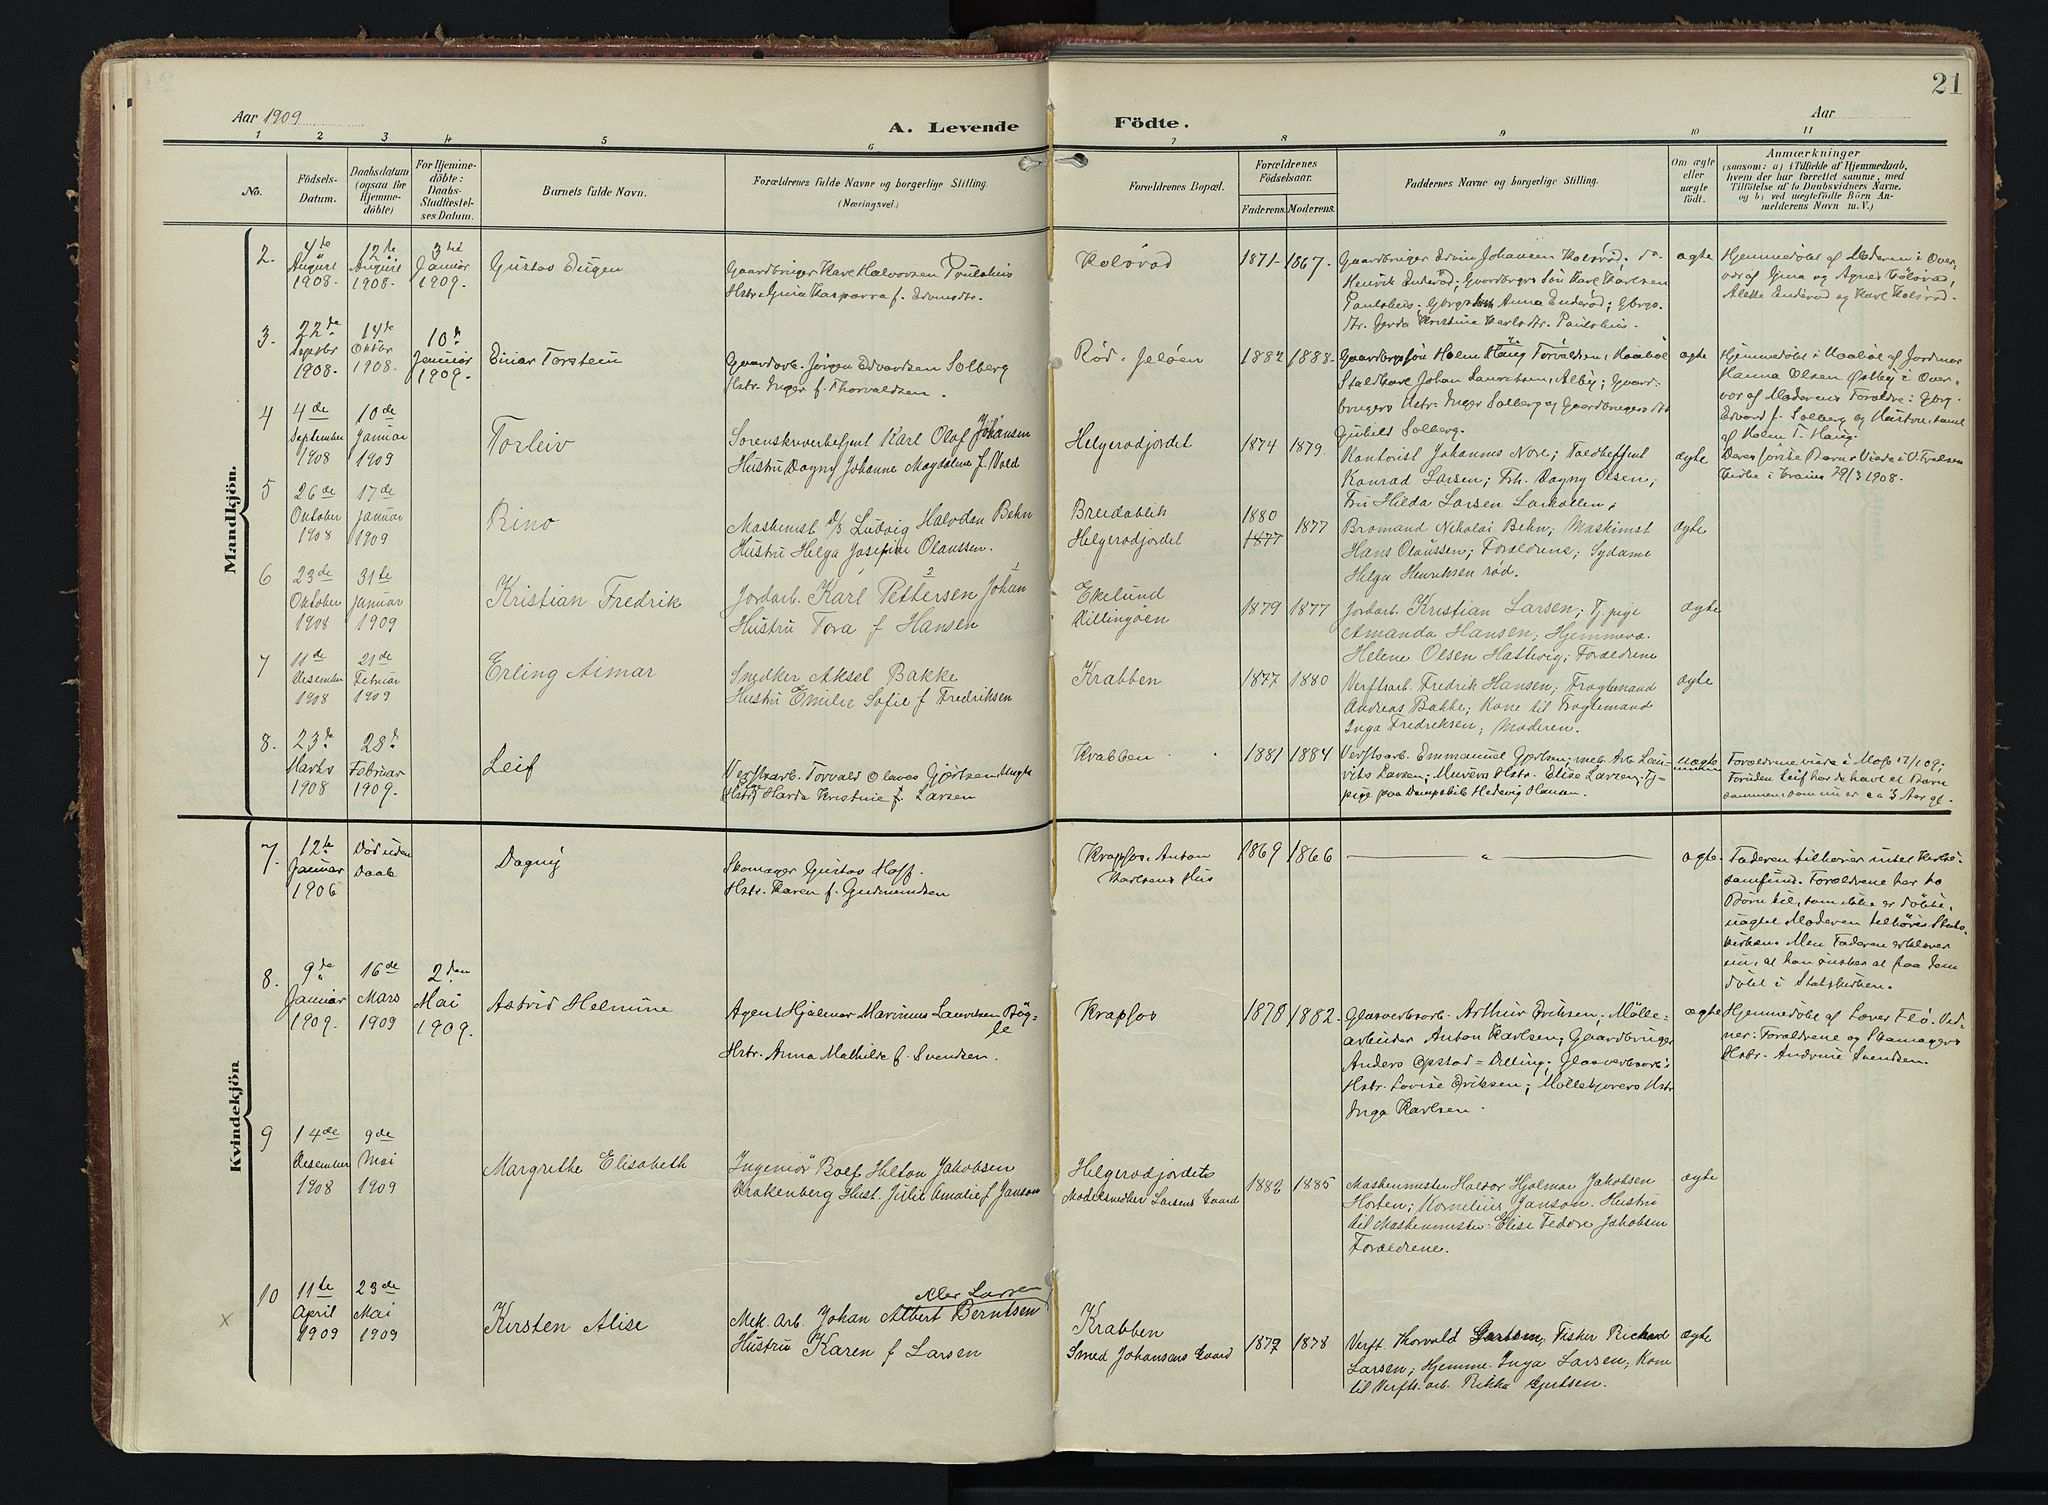 21
Aar 1909
A. Levende Födte.
Aar
1 2 3 4 5 6 7 8 9 10 11
No.
Födsels-
Datum.
Daabsdatum
(ogsaa for
Hjemme-
döbte)
For Hjemme-
döbte:
Daabs-
Stadfæstel-
ses Datum.
Barnets fulde Navn.
Forældrenes fulde Navne og borgerlige Stilling.
(Næringsvei.)
Forældrenes Bopæl.
Forældrenes
Födselsaar.
Faderens. Moderens.
Faddernes Navne og borgerlige Stilling.
Om ægte
eller
uægte
födt.
Anmærkninger
(saasom: a) i Tilfælde af Hjemmedaab,
hvem der har forrettet samme, med
Tilföielse af to Daabsvidners Navne,
og b) ved uægtefödte Börn An-
melderens Navn m. V.)
Mandkjön.
2.
4de
August
1908.
12te
August
1908.
3die
Januar
1909.
Gustav Eugen
Gaardbruger Karl Halvorsen Paulshus
Hstr. Gina Kasparra f. Edvardsdtr.
Kolsrød
1871 - 1867.
Gaardbruger Edvin Johansen Kolsrød; do.
Henrik Enderød; Gaardbrgrs Søn Karl Karlsen
Paulshus; Gbrgs Anna Enderød; Gbrgs.
dtr. Gerda Kristine Karlsdtr. Paulshus.
ægte
Hjemmedøbt af Moderen i Over-
vær af Gina og Agnes Kolsrød,
Alette Enderød og Karl Kolsrød.
3.
22de
Septbr
1908.
14de
Oktbr
1908.
10de
Januar
1909.
Einar Torstein
Gaardarb. Jørgen Edvardsen Solberg
Hstr. Inger f. Thorvaldsen.
Rød. Jeløen
1882 1888.
Gaardbrgssøn Holm Haug Torvaldsen,
Staldkarl Johan Lauritsen, Alby; Gaard-
brugers Hstr. Inger Solberg og Gaardbrugers dtr
Gunhild Solberg.
ægte
Hjemmedøbt i af Jordmor
Hanna Olsen Østby i Over-
vær af Moderens Forældre: Gbrg.
Edvard f. Solberg og Hustru, samt
af Holm T. Haug.
4
4de
September
1908
10de
Januar
1909
Torleiv
Sorenskriverbefgent Karl Olaf Johansen
Hustru Dagny Johanne Magdalene f. Vold
Helgerødjordet
1874 1879
Kontorist Johannes Nore; Toldbetjent
Konrad Larsen; Frk. Dagny Olsen;
Fru Hilda Larsen Larkollen;
ægte
Deres første Barn. Viede i V. Fredriks
Kirke i 29/3 1908.
5
26de
Oktober
1908
17de
Januar
1909
Rino
Maskinist D/S Ludvig Halvdan Behn
Hustru Helga Josefine Olaussen.
Breidablik
Helgerødjordet
1880
1877
1877
Bromand Nikolai Behn; Maskinist
Hans Olaussen; Forældrene; Sydame
Helga Henriksen Rød.
ægte
6
23de
Oktober
1908
31te
Januar
1909
Kristian Fredrik
Jordarb. Karl Pettersen Johan
Hustru Tora f Hansen
Ekelund
Dillingøen
1879 1877
Jordarb. Kristian Larsen; Tj. pige
Amanda Hansen; Hjemmeva.
Helene Olsen Hattvig; Forældrene
ægte
7
11de
Desember
1908
21de
Februar
1909
Erling Aimar
Snedker Aksel Bakke
Hustru Emilie Sofie f Fredriksen
Krabben
1877 1880
Verftsarb. Fredrik Hansen; Fragtemand
Andreas Bakke; Kone til Fragtemand
Inga Fredriksen; Moderen.
ægte
8.
23de
Marts
1908
28de
Februar
1909.
Leif
Verftsarb. Torvald Olaves Gjertsen
Hstr. Harda Kristine f. Larsen
Krabben
1881 1884
Verftsarb. Emmanuel Gjertsen; mek. Arb. Lau-
rits Larsen; Murers Hstr. Elise Larsen; Tj-
pige paa Dampskib Hedevig Hansen.
uægte
Forældrene viede i Moss 17/1 09;
Foruden Leif har de havt et Barn
sammen, som nu er ca 3 Aar gl.
Kvindekjön
7.
12te
Januar
1906
Død uden
Daab
Dagny
Skomager Gustav Hoff.
Hstr. Karen f. Gudmundsen
Krapfos. Anton
Karlsens Hus
1869 1866
"
ægte.
Faderen tilhører intet Kirke-
samfund. Forældrene har to
Børn til, som ikke er døbte,
uagtet Moderen tilhører Stats-
kirken. Men Faderen erklærer
nu, at han ønsker at faa dem
døbt i Statskirken.
8.
9de
Januar
1909.
16de
Mars
1909
2den
Mai
1909.
Astrid Helmine
Agent Hjalmar Marinus Lauritsen Bøg-
le
Hstr. Anna Mathilde f. Svendsen.
Krapfos
1878 1882.
Glasverksarb. Arthur Eriksen; Mølle-
arbeider Anton Karlsen; Gaardbruger
Anders Opstad = Dilling; Glasverksarb.s
Hstr. Lovise Eriksen; Møllekjørers Hstr
Inga Karlsen.
ægte
Hjemmedøbt af Lærer Flø. Vid-
ner: Forældrene og Skomagers
Hstr. Andrine Svendsen.
9
14de
Desember
1908
9de
Mai
1909
Margrethe Elisabeth
Ingeniør Rolf Hilton Jakobsen
Drakenberg Hust. Julie Amalie f Janson
Helgerødjordets
Modelsnedker Larsens Gaard
1882 1885
Maskinmester Haldor Hjalmar Jakobsen
Horten; Kornelius Janson. Hustru
til Maskinmester Elise Fedore Jakobsen
Forældrene.
ægte
x
10
11te
April
1909
23de
Mai
1909
Kirsten Alise
Aler Larsen
Mek. Arb. Johan Albert Berntsen
Hustru Karen f Larsen
Krabben
Smed Johansens Gaard
1877 1878
Verft. Thorvald ; Fisker Richard
Larsen; Hjemme. Inga Larsen; Kone
til Verfts.arb. Rikka Gjertsen.
ægte